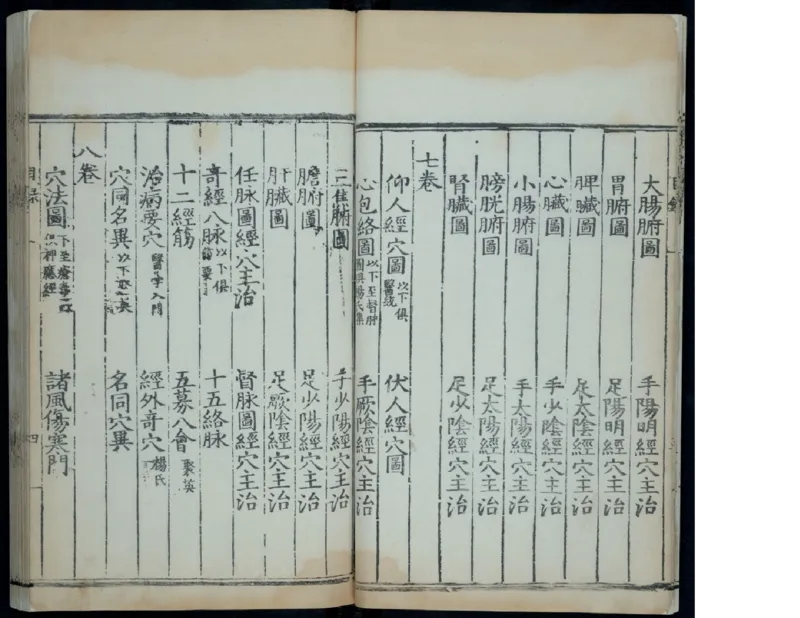 大腸腑圖 手陽明經穴主治
胃腑圖 足陽明經穴主治
脾臟圖 足太陰經穴主治
心臟圖 手少陰經穴主治
小腸腑圖 手太陽經穴主治
膀胱腑圖 足太陽經穴主治
腎臟圖 足少陰經穴主治
七卷
仰人經穴圖 以下俱醫統 伏人經穴圖
心包絡圖 以下至督脉圖俱楊氏集 手厥陰經穴主治
三焦腑圖 手少陽經穴主治
膽腑圖 足少陽經穴主治
肝臟圖 足厥陰經穴主治
任脉圖經穴主治 督脉圖經穴主治
奇經八脉 以下俱節要 十五絡脉
十二經筋 五募八會 聚英
治病要穴 醫學入門 經外奇穴 楊氏
穴同名異 以下聚英 名同穴異
八卷
穴法圖 俱神應經 諸風傷寒門
目录
四